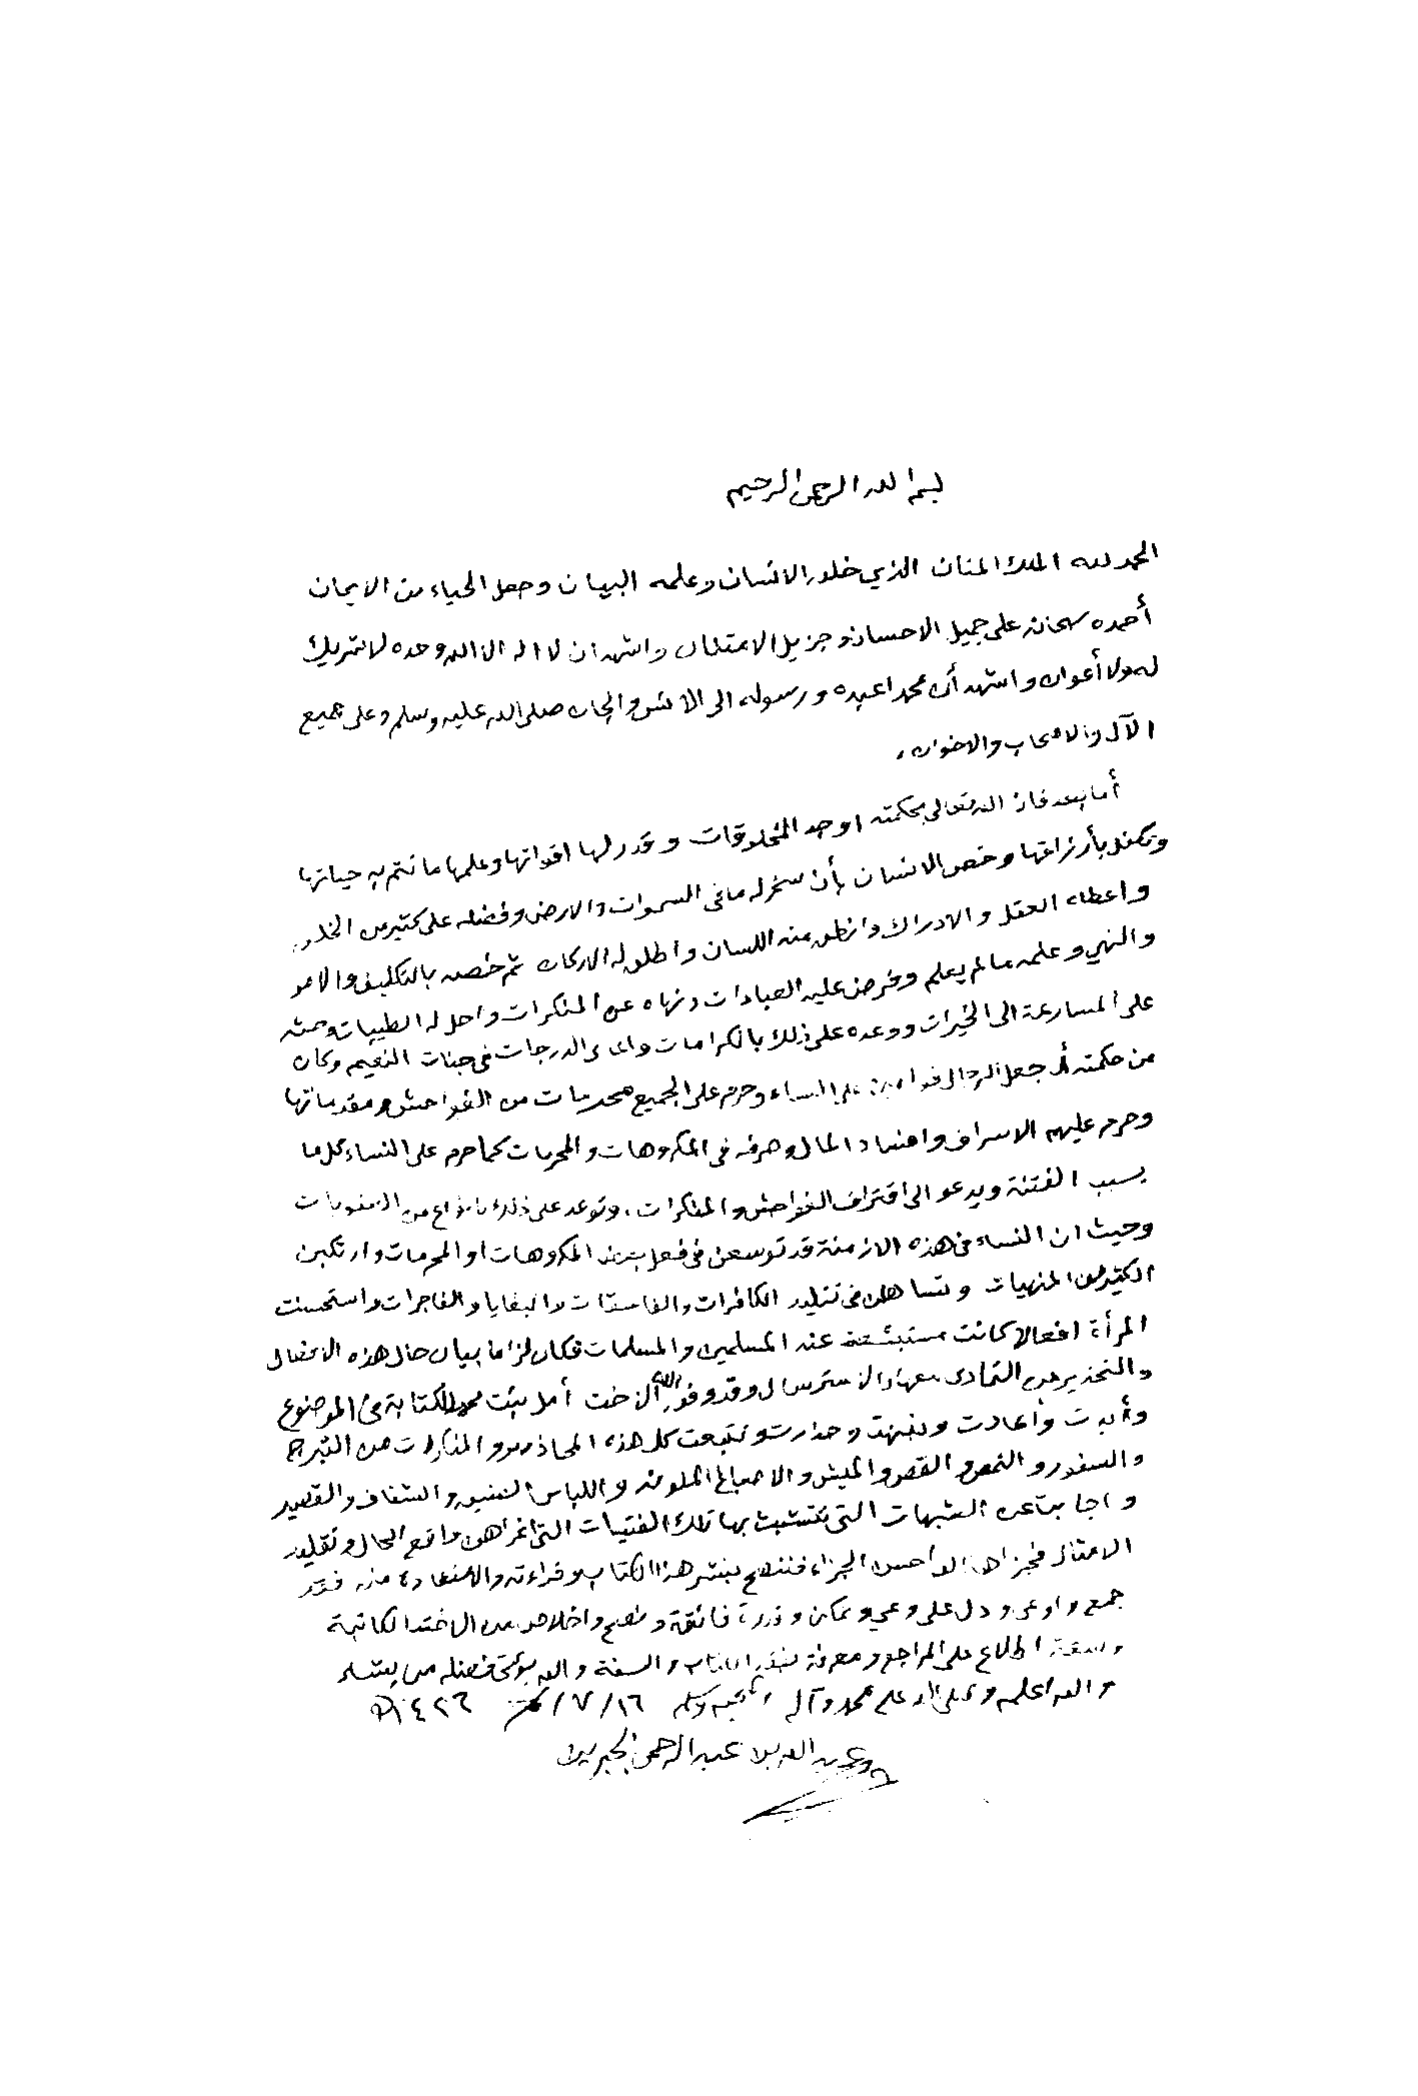 بسم الله الرحمن الرحيم
الحمد لله الملك المنان الذي خلق الانسان وعلمه البيان وجعل الحياء من الايمان
أحمده سبحانه على جميل الاحسان وجزيل الامتنان واشهد ان لا اله الا الله وحده لا شريك
له ولا أعوان واشهد أن محمدا عبده ورسوله الى الانس والجان صلى الله عليه وسلم وعلى جميع
الآل والاصحاب والاخوان.
أما بعد فان الله تعالى بحكمته اوجد المخلوقات وقدر لها اقواتها وعلمها ما تتم به حياتها
وتكفل بأرزاقها وخص الانسان بأن سخر له ما في السموات والارض وفضله على كثير من الخلق
واعطاه العقل والادراك وانطق منه اللسان واطلق له الاركان ثم خصه بالتكليف والامر
والنهي وعلمه ما لم يعلم وفرض عليه العبادات ونهاه عن المنكرات واحل له الطيبات وحثه
على المسارعة الى الخيرات ووعده على ذلك بالكرامات والدرجات في جنات النعيم وكان
من حكمته أن جعل الرجال قوامين على النساء وحرم على الجميع المحرمات من الفواحش ومقدماتها
وحرم عليهم الاسراف وافساد المال وصرفه في المكروهات والمحرمات كما حرم على النساء كل ما
يسبب الفتنة ويدعو الى اقتراف الفواحش والمنكرات، وتوعد على ذلك بانواع من العقوبات
وحيث ان النساء في هذه الازمنة قد توسعن في فعل بعض المكروهات او المحرمات وارتكبن
الكثير من المنهيات وتساهلن في تقليد الكافرات والفاسقات والبغايا والفاجرات واستحسنت
المرأة افعالا كانت مستبشعة عند المسلمين والمسلمات فكان لزاما بيان حال هذه الافعال
والتحذير من التمادي معها والاسترسال وقد وفق الله الاخت أمل بنت محمد للكتابة في الموضوع
وأبدت وأعادت ونبهت وحذرت وتتبعت كل هذه المحاذير والمنكرات من التبرج
والسفور والنمص والقص والميش والاصباغ الملونة واللباس الضيق والشفاف والقصير
واجابت عن الشبهات التي تتشبث بها تلك الفتيات التي اغراهن واقع الحال وتقليد
الامثال فجزاها الله احسن الجزاء فننصح بنشر هذا الكتاب وقراءته والاستفادة منه فقد
جمع واوعى ودل على وعي وتمكن وقدرة فائقة ونصح واخلاص من الاخت الكاتبة
وسعة اطلاع على المراجع ومعرفة بفقه الكتاب والسنة والله يؤتي فضله من يشاء
والله اعلم وصلى الله على محمد وآله وصحبه وسلم ١٦/٧/١٤٢٦هـ
عبد الله بن عبد الرحمن الجبرين